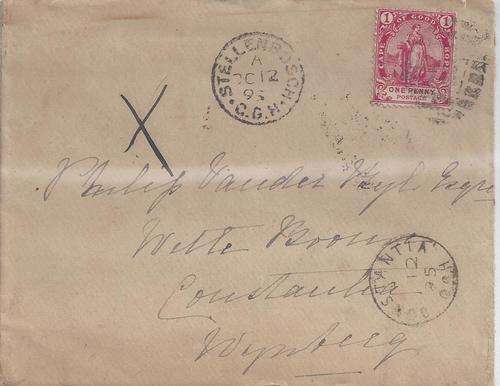 STELLENBOSCH
A
OC 12
95
C.G.H.
1 1
CAPE OF GOOD HOPE
ONE PENNY
POSTAGE
X
Philip Vander Byl Esqre
Witte Boomen
Constantia
Wynberg
12
95